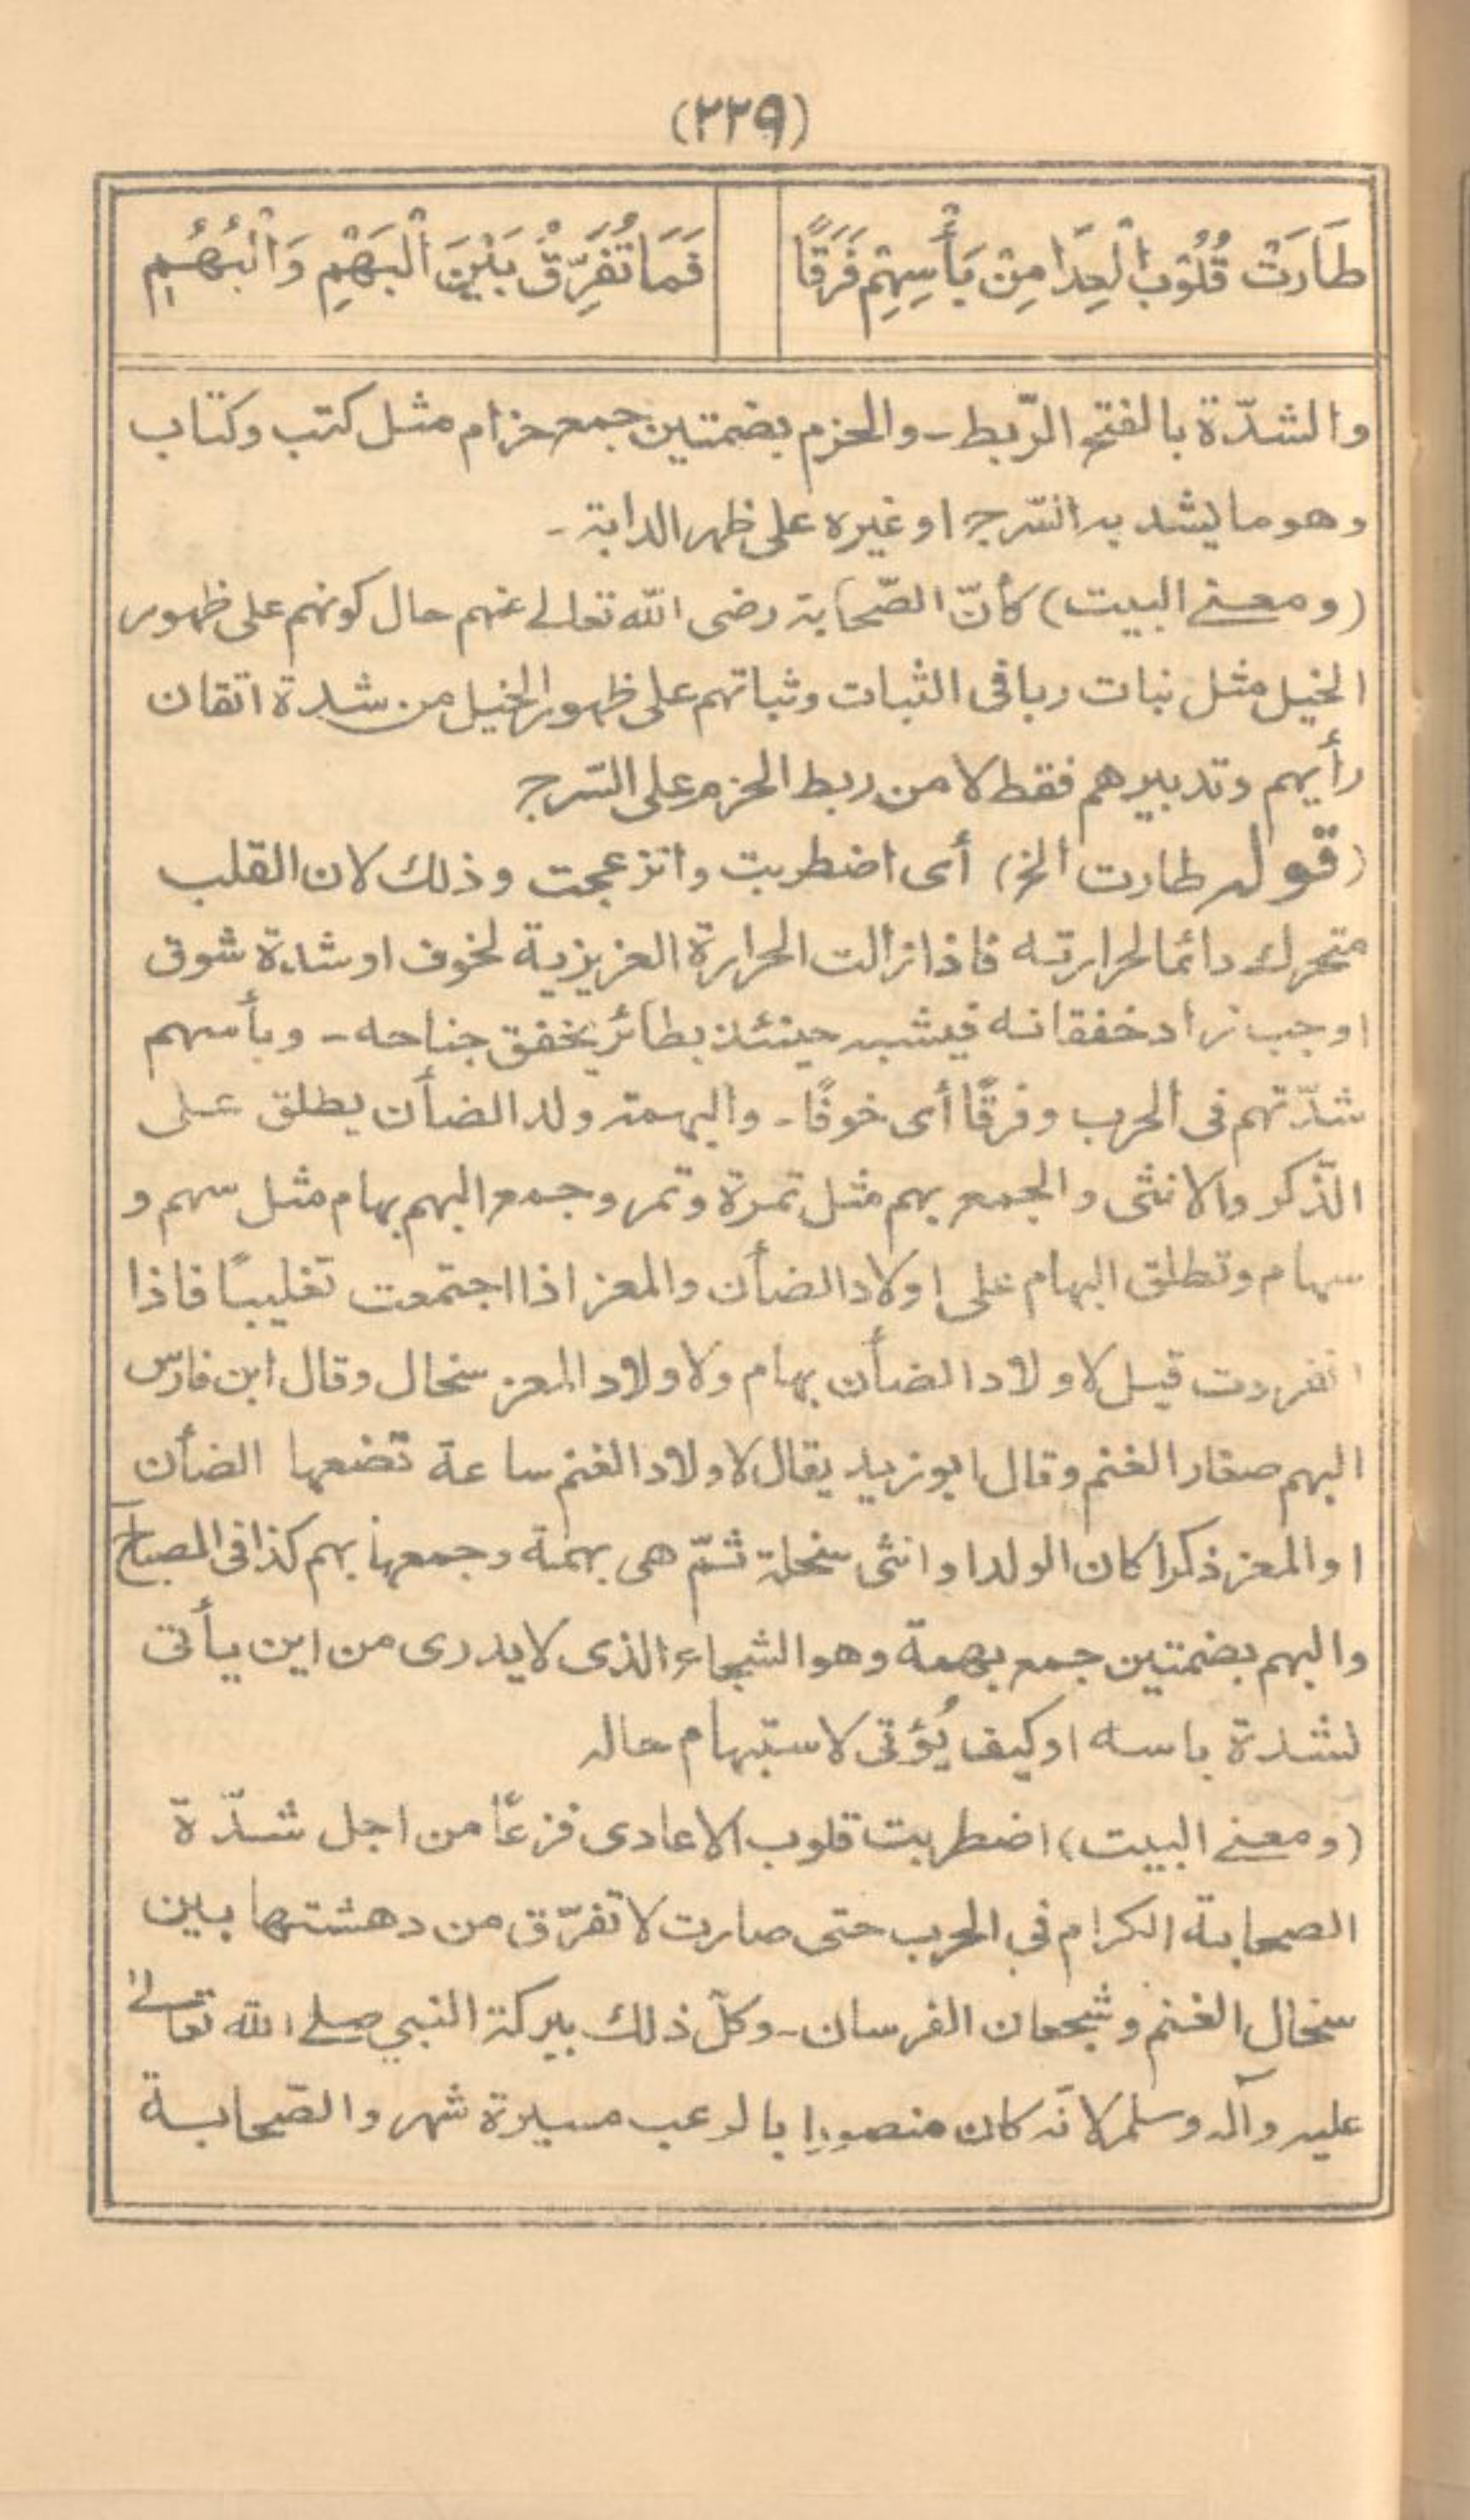 (٢٢٩)
طَارَتْ قُلُوْبُ الْعِدَا مِنْ بَأْسِهِمْ فَرَقًا
فَمَا تُفَرِّقُ بَيْنَ الْبَهْمِ وَالْبُهُمِ
والشدّة بالفتح الرّبط - والحزم بضمتين جمع حزام مثل كتب وكتاب
وهو ما يشد به السّرج او غيره على ظهر الدابة -
(ومعنى البيت) كأنّ الصّحابة رضى الله تعالى عنهم حال كونهم على ظهور
الخيل مثل نبات ربا فى الثبات وثباتهم على ظهور الخيل من شدة اتقان
رأيهم وتدبيرهم فقط لا من ربط الحزم على السّرج
(قوله طارت الخ) أى اضطربت وانزعجت وذلك لان القلب
متحرك دائما لحرارته فاذا زالت الحرارة العزيزية لخوف او شدة شوق
اوجب زاد خفقانه فيشبه حينئذ بطائر يخفق جناحه - وبأسهم
شدّتهم فى الحرب وفرقًا أى خوفًا - والبهمة ولد الضأن يطلق على
الذّكر والانثى والجمع بهم مثل تمرة وتمر وجمع البهم بهام مثل سهم و
سهام وتطلق البهام على اولاد الضأن والمعز اذا اجتمعت تغليبًا فاذا
انفردت قيل لاولاد الضأن بهام ولاولاد المعز سخال وقال ابن فارس
البهم صغار الغنم وقال ابو زيد يقال لاولاد الغنم ساعة تضعها الضأن
او المعز ذكرا كان الولد او انثى سخلة ثمّ هى بهمة وجمعها بهم كذا فى المصباح
والبهم بضمتين جمع بهمة وهو الشجاع الذى لا يدرى من اين يأتى
لشدة باسه او كيف يُؤتى لاستبهام حاله
(ومعنى البيت) اضطربت قلوب الاعادى فزعًا من اجل شدّة
الصحابة الكرام في الحرب حتى صارت لا تفرّق من دهشتها بين
سخال الغنم وشجعان الفرسان - وكلّ ذلك ببركة النبي صلى الله تعالى
عليه وآله وسلم لانّه كان منصورا بالرعب مسيرة شهر والصّحابة